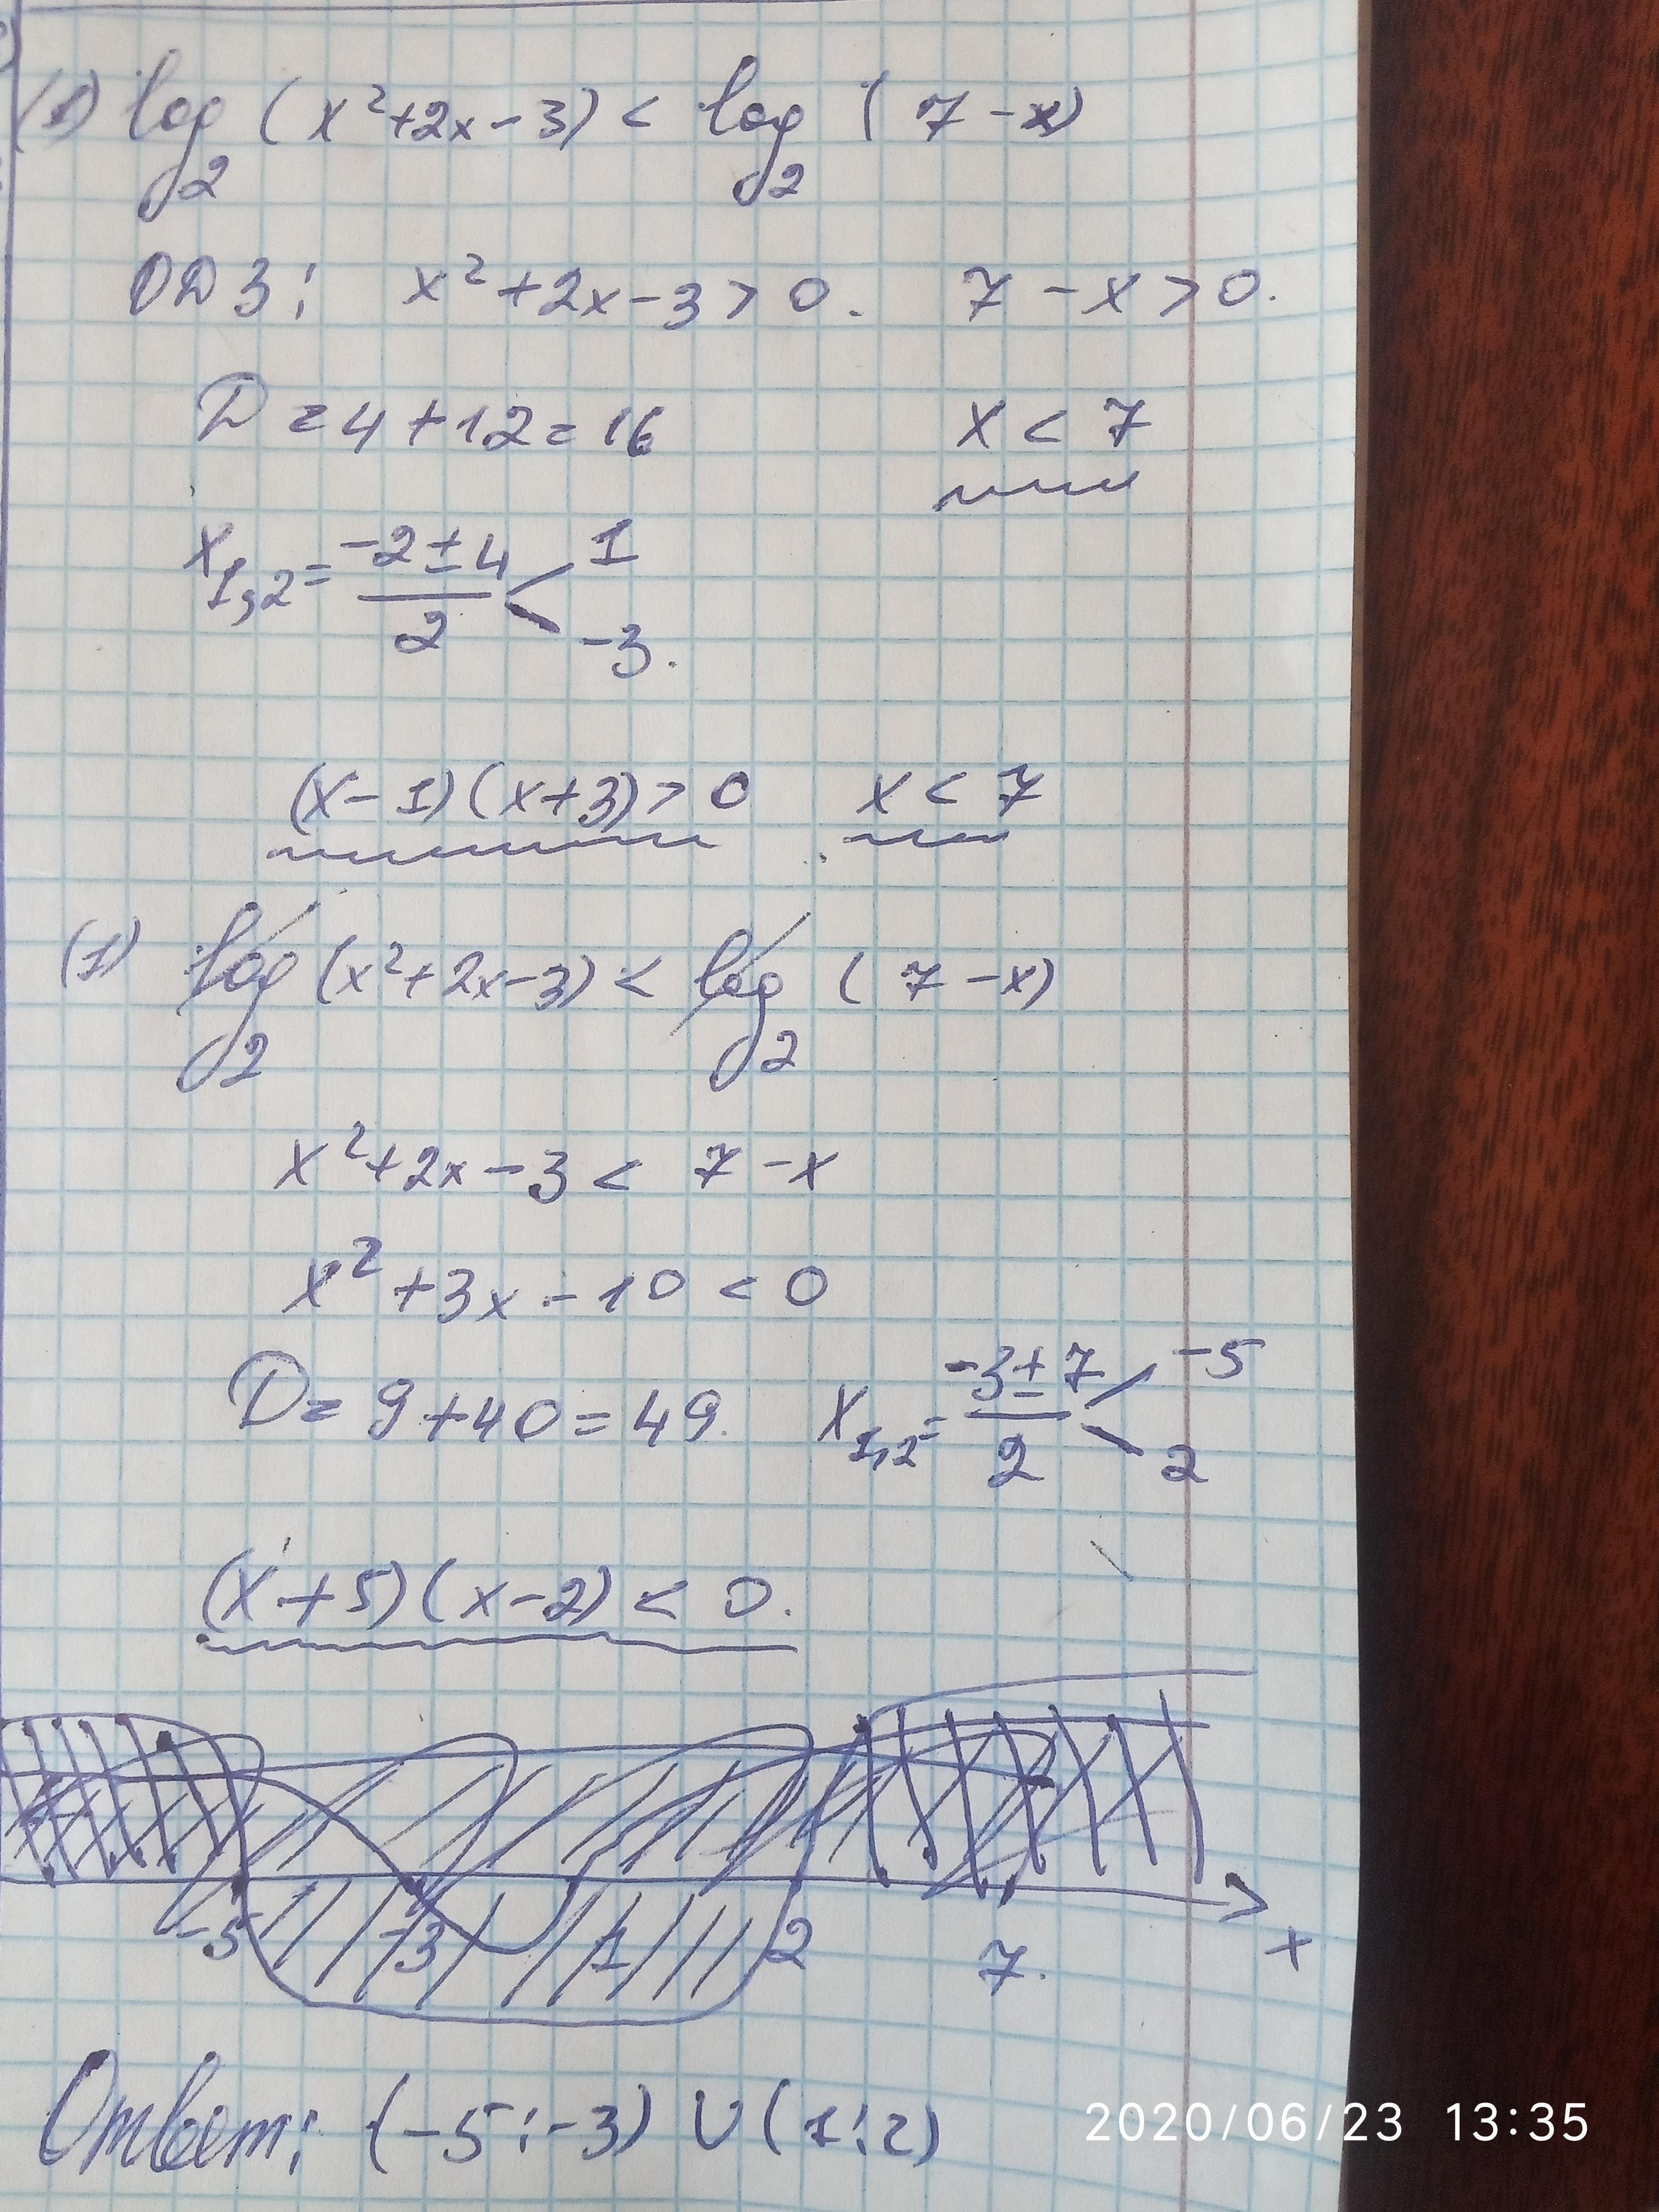 (1) log₂ (x²+2x-3) < log₂ (7-x)
ОДЗ: x²+2x-3>0. 7-x>0.
D=4+12=16 x<7
x₁,₂= (-2±4)/2 < 1
-3.
(x-1)(x+3)>0 x<7
(1) log₂ (x²+2x-3) < log₂ (7-x)
x²+2x-3< 7-x
x²+3x-10<0
D=9+40=49. x₁,₂= (-3±7)/2 -5
2
(x+5)(x-2)<0.
-5 -3 1 2 7. x
Ответ: (-5;-3) U (1;2)
2020/06/23 13:35